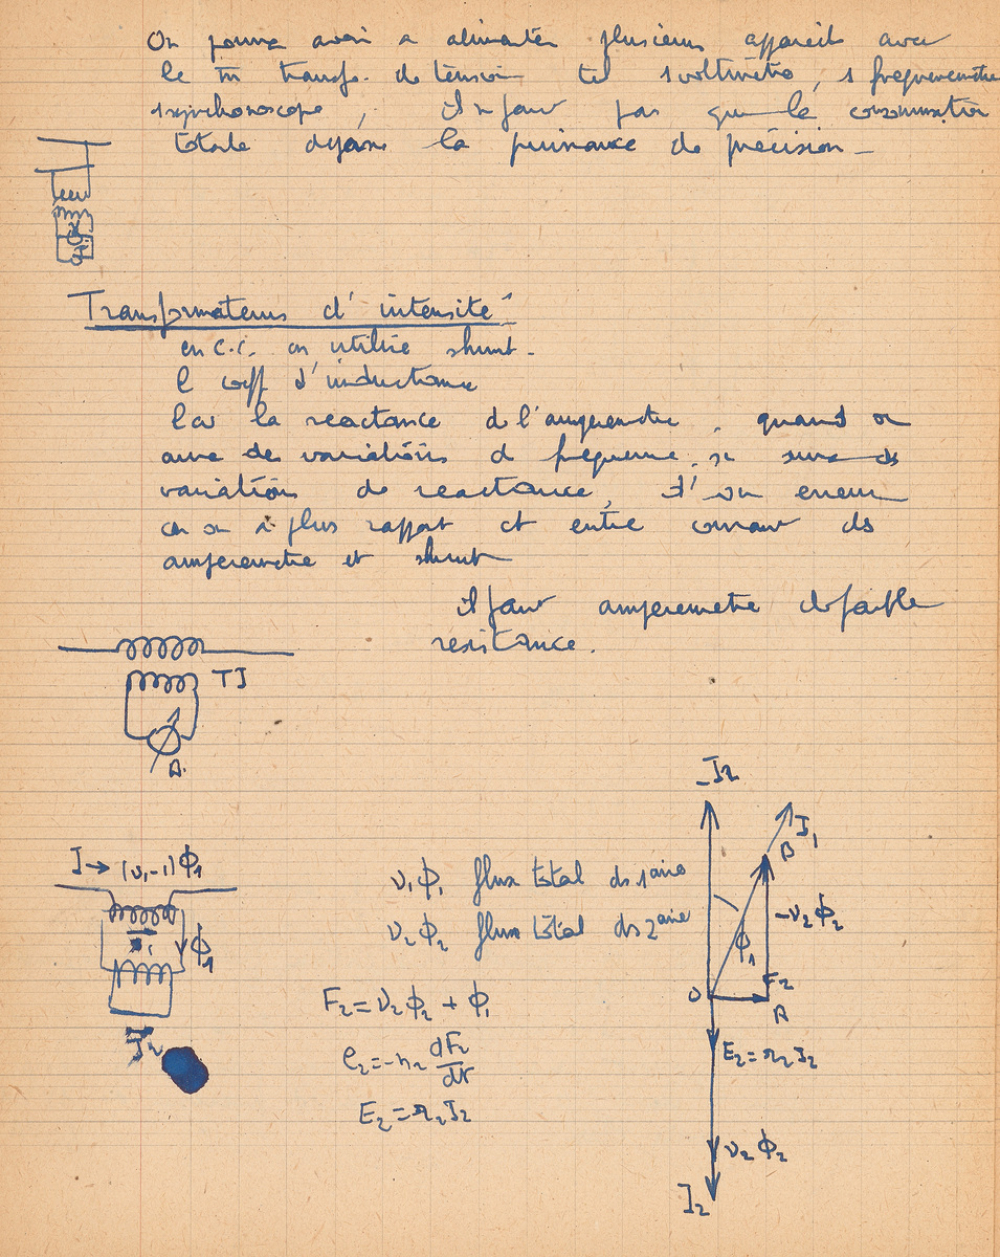 On pourra avoir a alimenter plusieurs appareils avec
le m transfo. de tension tel 1 voltmètre, 1 frequencemetre
1 synchonoscope, il n faut pas que la consommation
totale dépasse la puissance de précision -
Transformateurs d'intensité
en C.C. on utilise shunt.
l coeff d'inductance
Par la reactance de l'amperemetre, quand on
aura des variations d frequence, on aura ds
variations de reactance, d'où erreur
car on a plus rapport ct entre courant ds
amperemetre et shunt
il faut amperemetre de faible
resistance.
TI
A
-I2
I1
B
I → (ν1-1)ϕ1
ν1ϕ1 flux total ds 1aire
ν2ϕ2 flux total ds 2aire
-ν2ϕ2
ϕ1
ϕ1
F2
O
A
F2=ν2ϕ2 + ϕ1
I2
e2=-n2 dF2/dt
E2=r2I2
E2=r2I2
ν2ϕ2
I2